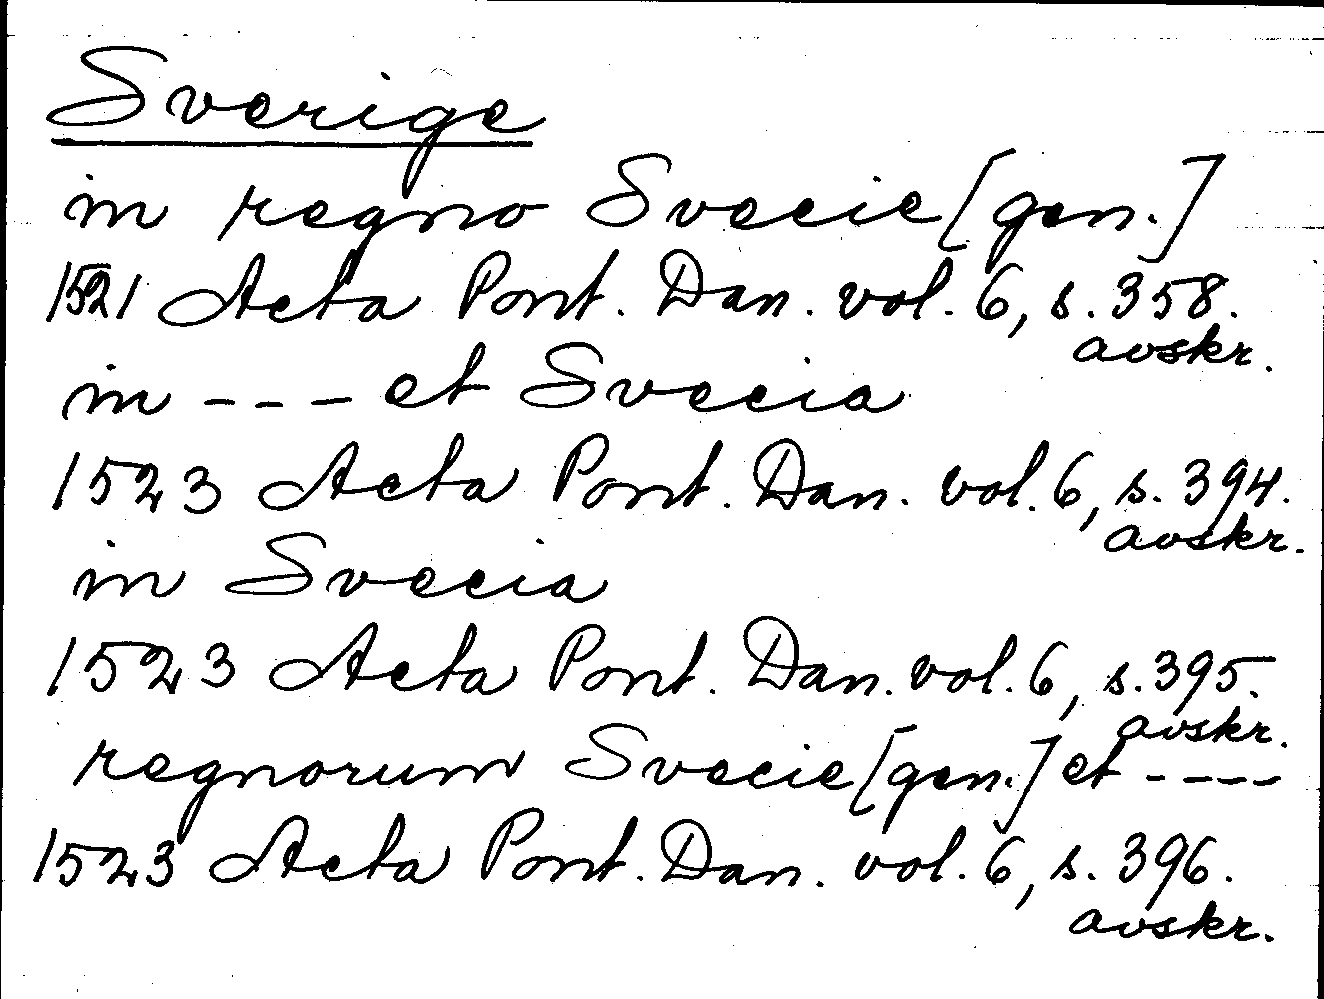 Sverige
in regno Svecie [gen.]
1521 Acta Pont. Dan. vol. 6, s. 358.
avskr.
in --- et Svecia
1523 Acta Pont. Dan. vol. 6, s. 394.
avskr.
in Svecia
1523 Acta Pont. Dan. vol. 6, s. 395.
avskr.
regnorum Svecie [gen.] et ----
1523 Acta Pont. Dan. vol. 6, s. 396.
avskr.